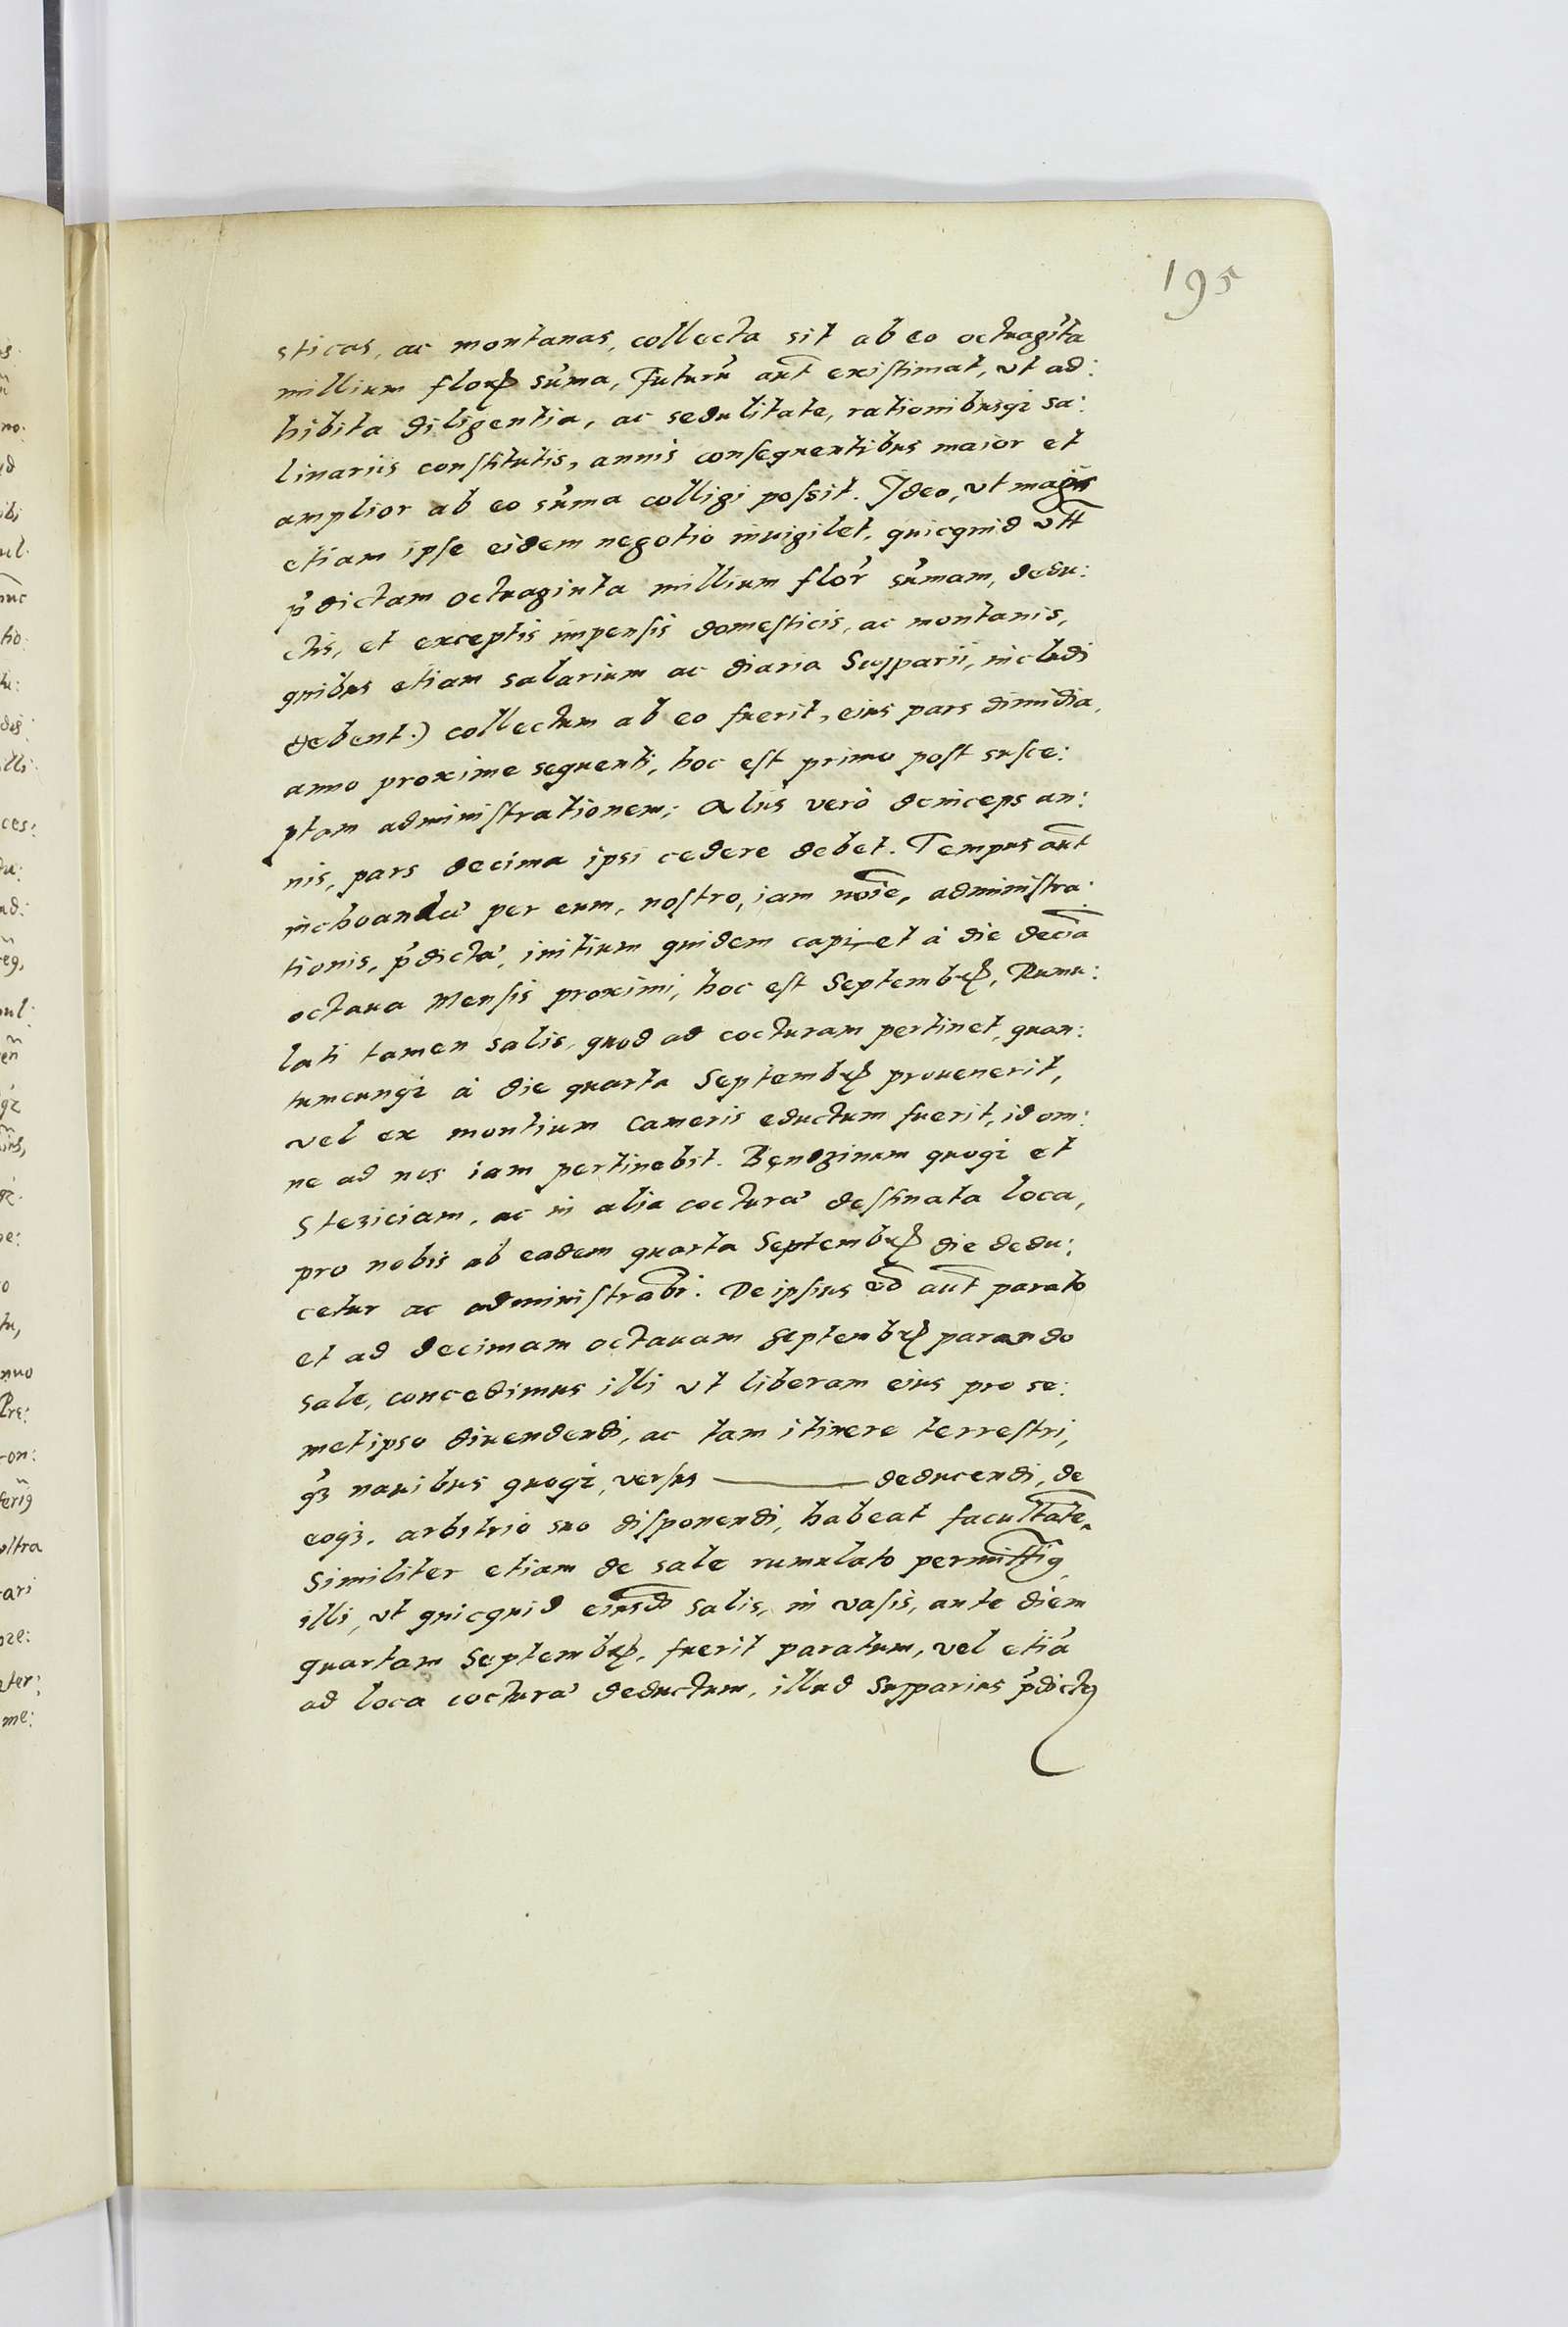 195
sticas, ac montanas, collecta sit ab eo octuagīta
millium floꝝ sum̃a, Futurũ aut̃ existimat, vt ad:
hibita diligentia, ac sedulitate, rationibusqꝫ sa:
linariis constitutis, annis consequentibus maior et
amplior ab eo sum̃a colligi possit. Ideo, vt magis
etiam ipse eidem negotio inuigilet, quicquid vlt̃
p̃dictam octuaginta millium flor̃ sum̃am, dedu:
ctis, et exceptis impensis domesticis, ac montanis,
quibus etiam salarium ac diaria Supparii, includi
debent.) collectum ab eo fuerit, eius pars dimidia,
anno proxime sequenti, hoc est primo post susce:
ptam administrationem; Aliis verò deinceps an:
nis, pars decima ipsi cedere debet. Tempus aut̃
inchoandæ per eum, nostro, iam noīe, administra:
tionis, p̃dictæ, initium quidem capiet à die decīa
octaua Mensis proximi, hoc est Septembꝝ, Rumu:
lati tamen salis, quod ad cocturam pertinet, quan:
tumcunqꝫ à die quarta Septembꝝ prouenerit,
vel ex montium Cameris eductum fuerit, id om:
ne ad nos iam pertinebit. Bęnozinum quoqꝫ et
Steziciam, ac in alia cocturæ destinata loca,
pro nobis ab eadem quarta Septembꝝ die dedu:
cetur ac administrabr̃. De ipsius vd̃ aut̃ parato
et ad decimam octauam Septembꝝ parando
sale, concedimus illi vt liberam eius pro se:
metipso diuendendi, ac tam itinere terrestri,
q̃ꝫ nauibus quoqꝫ, versus ——— deducendi, de
eoqꝫ, arbitrio suo disponendi, habeat facultatē.
Similiter etiam de sale rumulato permittiꝯ
illi, vt quicquid eiusd̃ salis, in vasis, ante diem
quartam Septembꝝ, fuerit paratum, vel etiã
ad loca cocturæ deductum, illud Supparius p̃dictꝯ